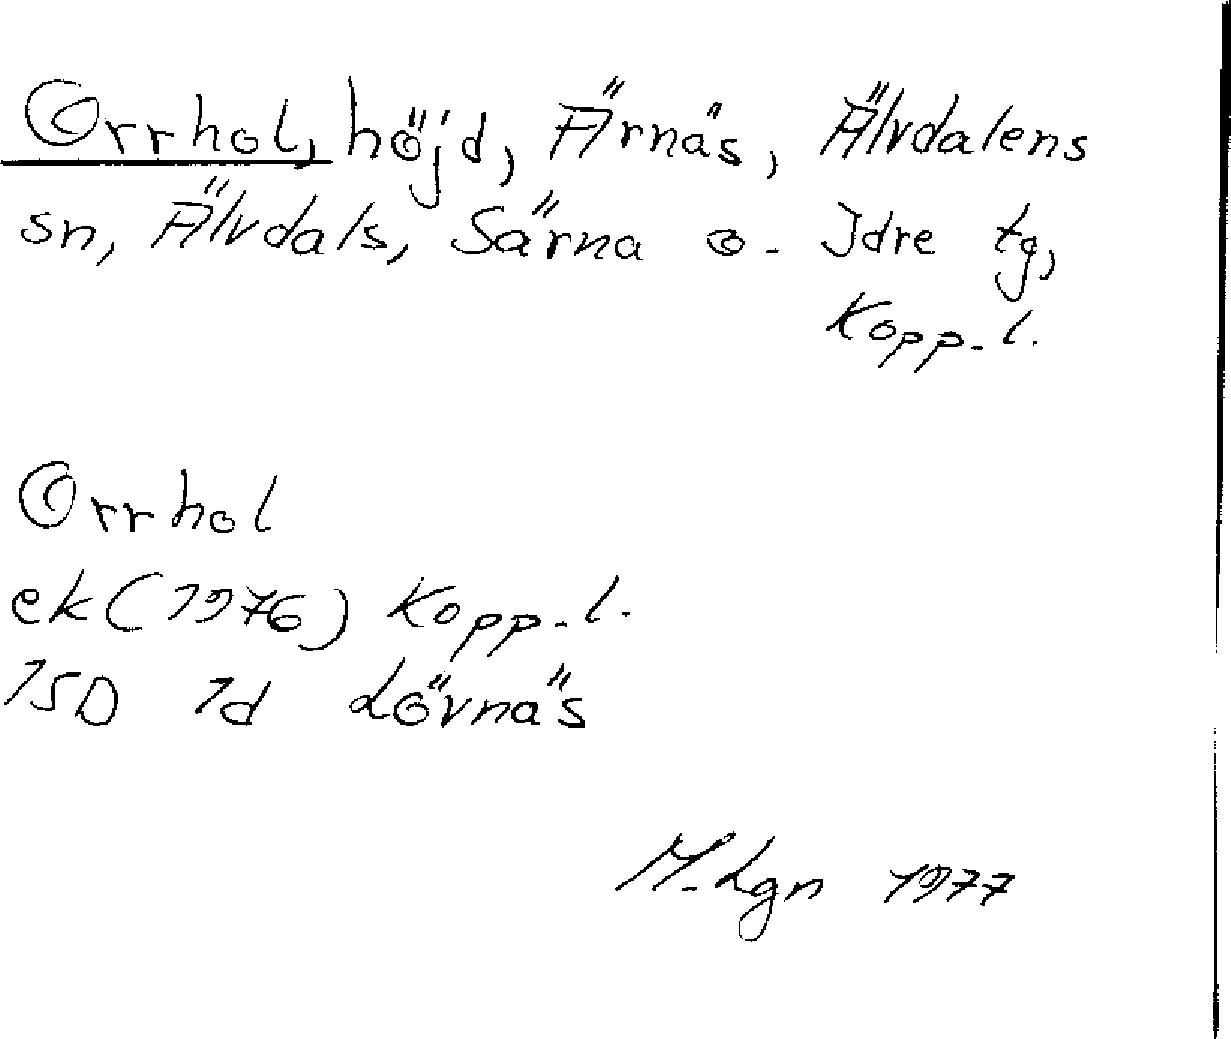 Orrhol, höjd, Ärnäs, Älvdalens
sn, Älvdals, Särna o. Idre tg,
Kopp. l.
Orrhol
ek (1976) Kopp. l.
15D 1d Lövnäs
M. Lgn 1977